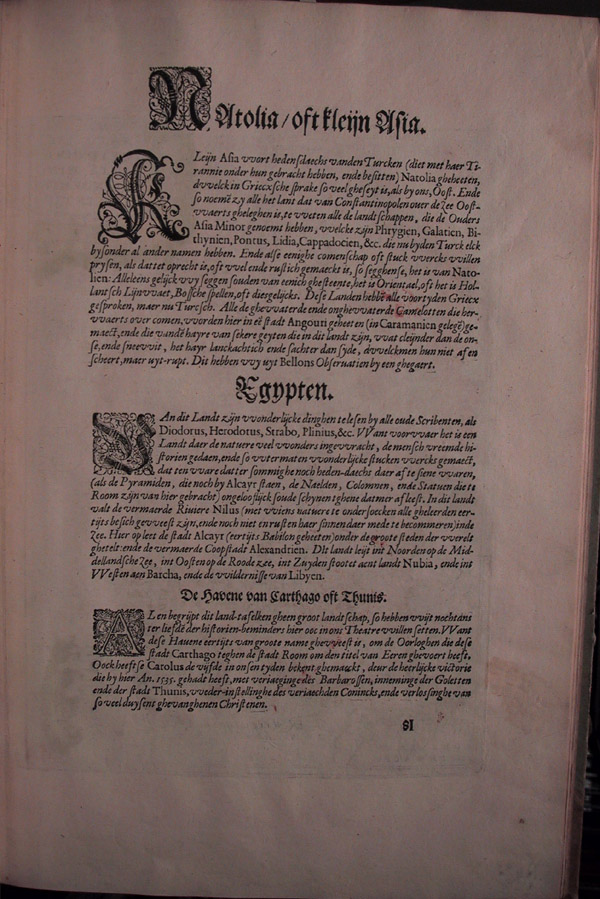 NAtolia / oft kleijn Asia.
KLeijn Asia wort hedensdaechs vanden Turcken (diet met haer Ti-
rannie onder hun gebracht hebben, ende besitten) Natolia gheheeten,
dwelck in Griecxsche sprake so veel gheseyt is, als by ons, Oost. Ende
so noemē zy alle het lant dat van Constantinopolen over de Zee Oost-
waerts gheleghen is, te weten alle de landtschappen, die de Ouders
Asia Minor genoemt hebben, welcke zijn Phrygien, Galatien, Bi-
thynien, Pontus, Lidia, Cappadocien, &c. die nu by den Turck elck
bysonder al ander namen hebben. Ende alse eenighe comenschap oft stuck wercks willen
prysen, als dattet oprecht is, oft wel ende rustich gemaeckt is, so segghense, het is van Nato-
lien: Alleleens gelijck wy seggen souden van eenich ghesteente, het is Orientael, oft het is Hol-
lantsch Lijnwaet, Bossche spellen, oft diergelijcks. Dese Landen hebbē alle voortyden Griecx
gesproken, maer nu Turcsch. Alle de ghewaterde ende onghewaterde Camelotten die her-
waerts over comen, worden hier in eē stadt Angouri geheeten (in Caramanien gelegē) ge-
maect, ende die vandē hayre van sekere geyten die in dit landt zijn, wat cleijnder dan de on-
se, ende sneewit, het hayr lanckachtich ende sachter dan syde, dwelckmen hun niet af en
scheert, maer uyt-rupt. Dit hebben wy uyt Bellons Observatien by een ghegaert.
Egypten.
VAn dit Landt zijn wonderlijcke dinghen te lesen by alle oude Scribenten, als
Diodorus, Herodotus, Strabo, Plinius, &c. Want voorwaer het is een
Landt daer de natuere veel wonders ingewracht, de mensch vreemde hi-
storien gedaen, ende so wtermaten wonderlijcke stucken wercks gemaect,
dat ten ware datter sommighe noch heden-daecht daer af te siene waren,
(als de Pyramiden, die noch by Alcayr staen, de Naelden, Colomnen, ende Statuen die te
Room zijn van hier gebracht) ongelooflijck soude schynen tghene datmer af leest. In dit landt
valt de vermaerde Riviere Nilus (met wiens natuere te ondersoecken alle gheleerden eer-
tijts besich geweest zijn, ende noch niet en rusten haer sinnen daer mede te becommeren) inde
Zee. Hier op leet de stadt Alcayr (eertijts Babilon geheeten) onder de groote steden der werelt
ghetelt: ende de vermaerde Coopstadt Alexandrien. Dit landt leijt int Noorden op de Mid-
dellandsche Zee, int Oosten op de Roode zee, int Zuyden stoot et aent landt Nubia, ende int
Westen aen Barcha, ende de wildernisse van Libyen.
De Havene van Carthago oft Thunis.
AL en begrijpt dit land-tafelken gheen groot landtschap, so hebben wijt nochtans
ter liefde der historien-beminders hier ooc in ons Theatre willen setten. Want
dese Havene eertijts van groote name gheweest is, om de Oorloghen die dese
stadt Carthago teghen de stadt Room om den titel van Eeren ghevoert heeft,
Oock heeftse Carolus de vijfde in onsen tyden bekent ghemaeckt, deur de heerlijcke victorie
die hy hier An. 1535. gehadt heeft, met veriaeginge des Barbarossen, inneminge der Goletten
ende der stadt Thunis, weder-instellinghe des veriaechden Conincks, ende verlossinghe van
so veel duysent ghevanghenen Christenen.
81